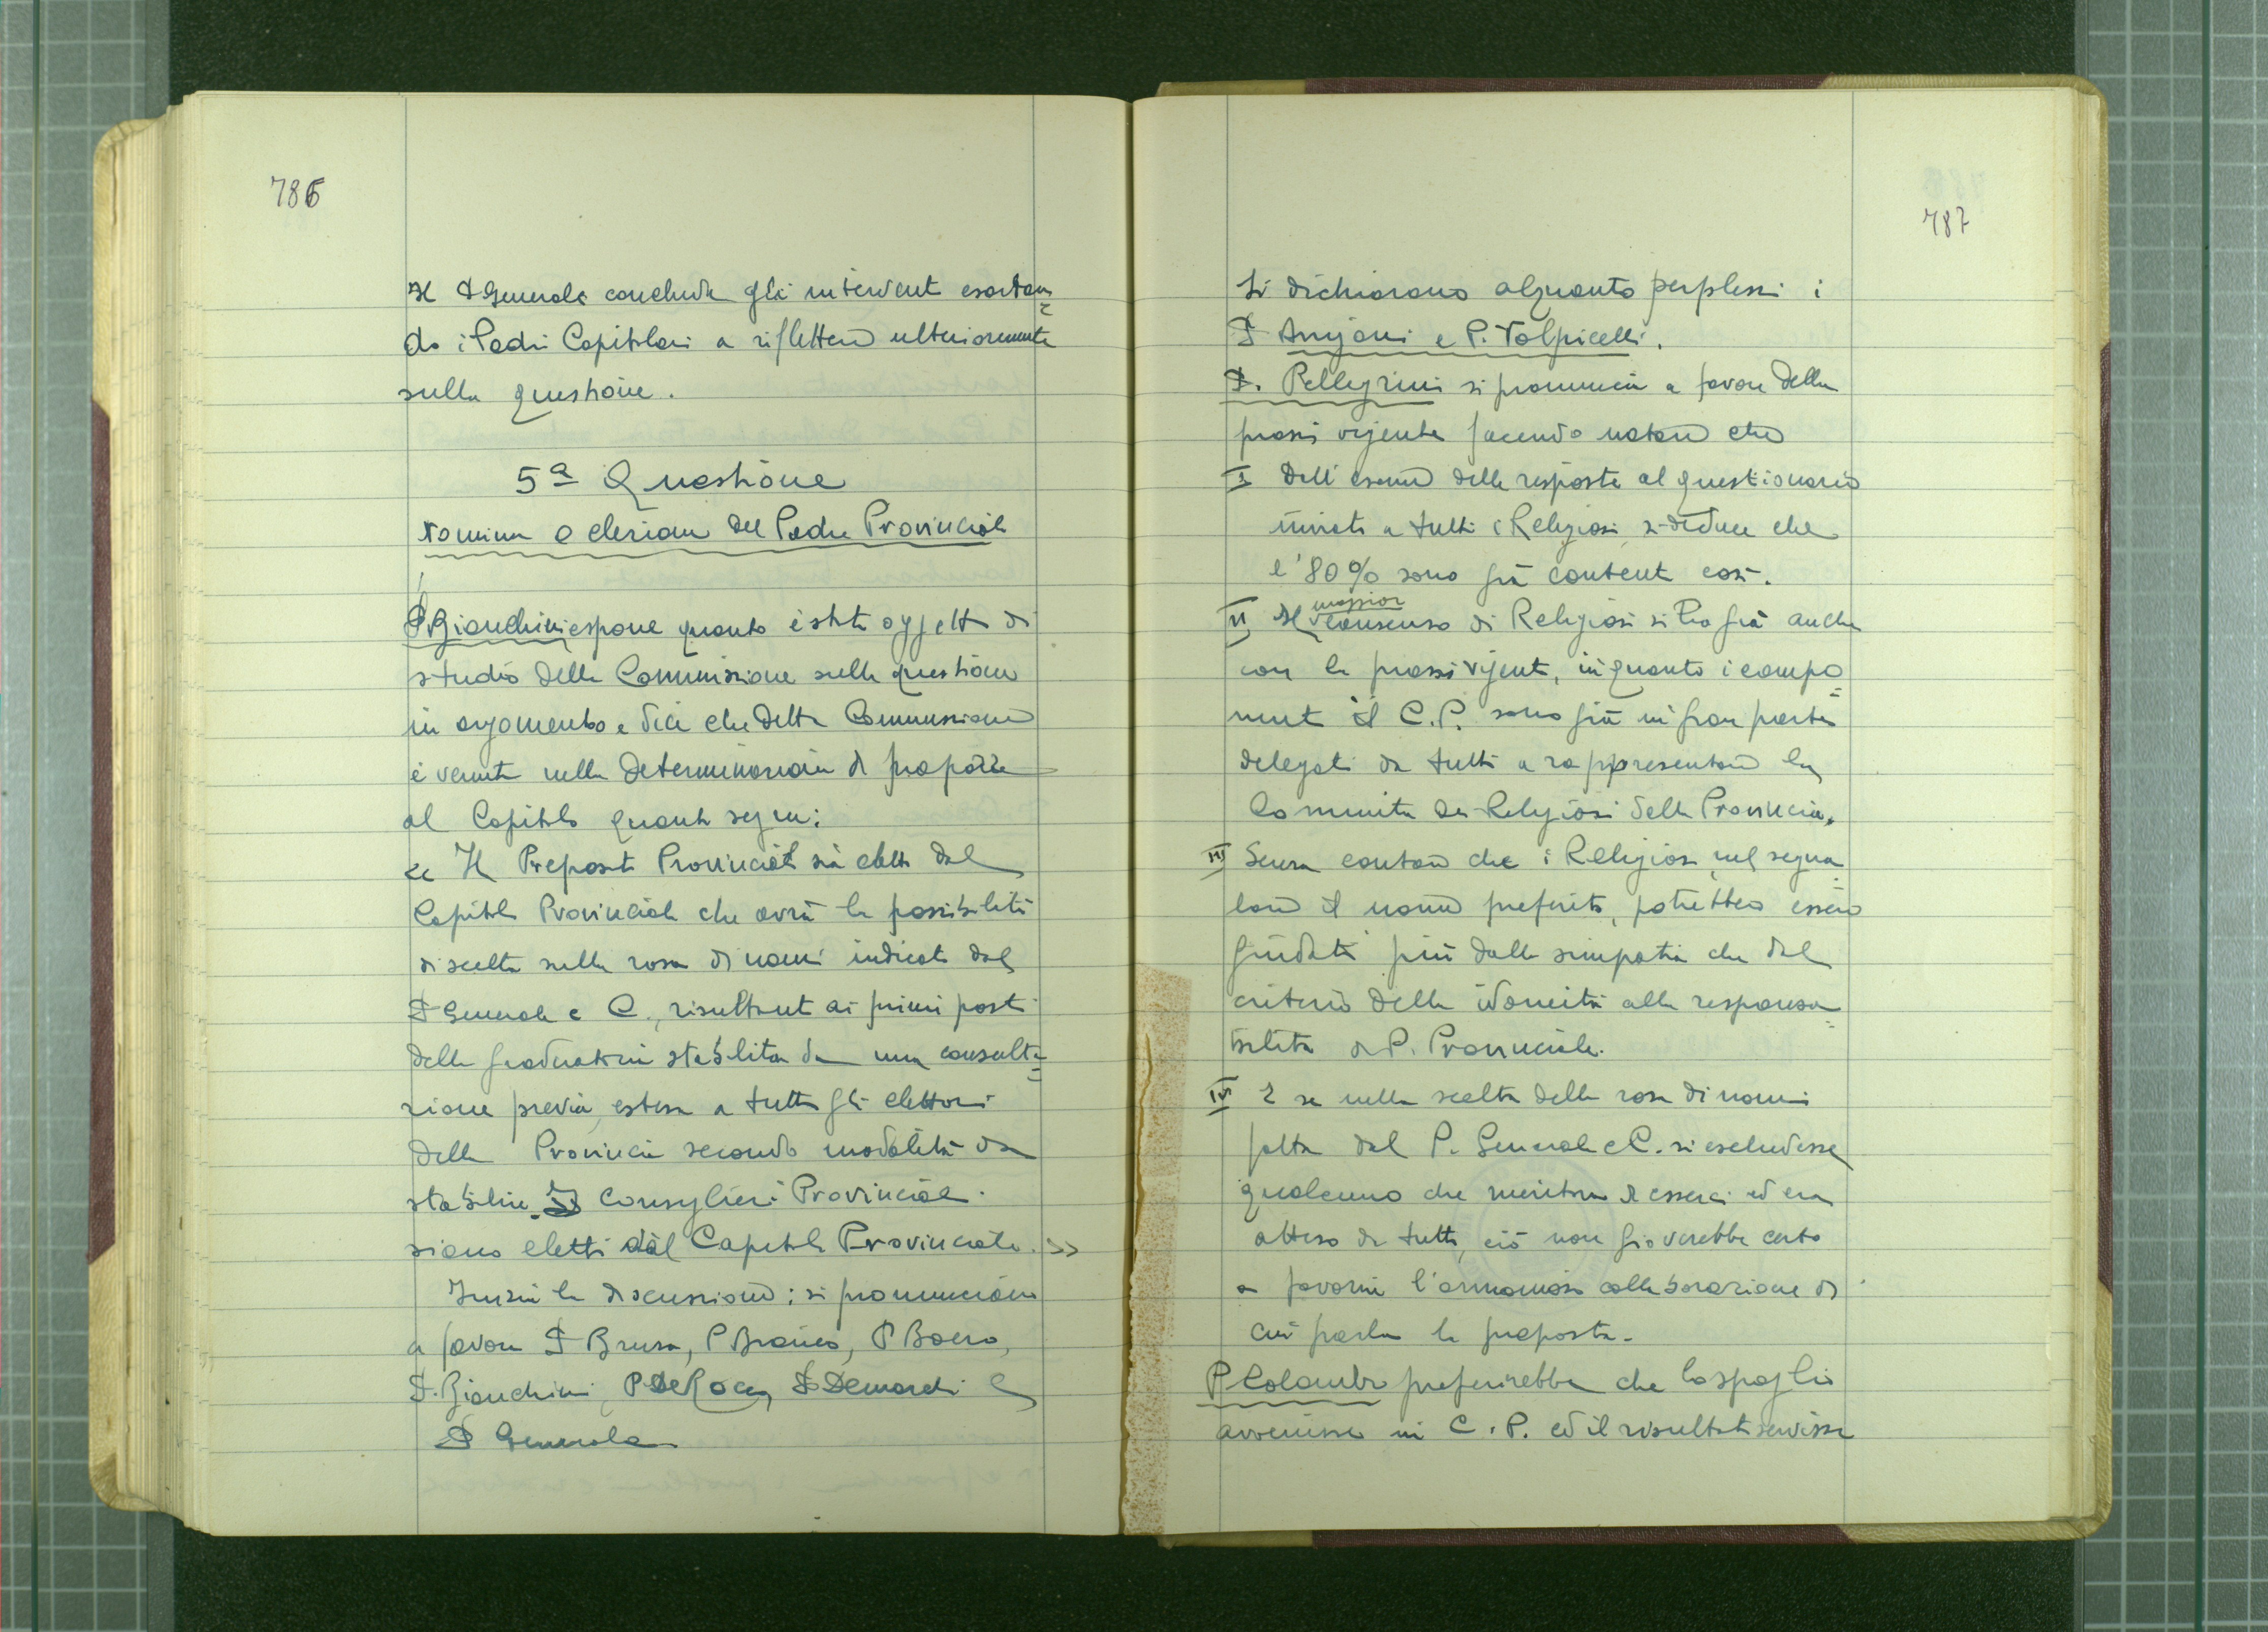 786
Il P Generale conclude gli intervent esortan=
do i Padri Capitolari a riflettere ulteriormente
sulla questione.
5ª Questione
Nomina o elezione del Padre Provinciale
P. Bianchini espone quanto è stato oggetto di
studio della Commissione sulla questione
in argomento e dice che detta Commissione
è venuta nella determinazione di proporre
al Capitolo quanto segue:
<< Il Preposito Provinciale sia eletto dal
Capitolo Provinciale che avrà la possibilità
di scelta sulla rosa di nomi indicati dal
P Generale e C., risultanti ai primi posti
della graduatoria stabilita da una consulta=
zione previa, estesa a tutti gli elettori
della Provincia secondo modalità da
stabilire. I Consiglieri Provinciali
siano eletti dal Capitolo Provinciale. >>
Inizia la discussione; si pronunciano
a favore P Brusa, P Bianco, P Boero,
P. Bianchini, P De Rocco, P Demarchi e
P Generale
787
Si dichiarano alquanto perplessi i
P Anjani e P. Volpicelli.
P. Pellegrini si pronuncia a favore della
prassi vigente facendo notare che
I Dall'esame delle risposte al questionario
inviato a tutti i Religiosi, si deduce che
l'80% sono già contenti così.
II Il maggior consenso di Religiosi si ha già anche
con la prassi vigente, in quanto i compo=
nenti il C.P. sono già in gran parte
delegati da tutti a rappresentare la
Comunità dei Religiosi della Provincia.
III Senza contare che i Religiosi nel segna=
lare il nome preferito, potrebbero essere
guidati più dalla simpatia che dal
criterio della idoneità alla responsa=
bilità di P. Provinciale.
IV E se nella scelta della rosa di nomi
fatta dal P. Generale e C. si escludesse
qualcuno che meritava di esserci ed era
atteso da tutti, ciò non gioverebbe certo
a favorire l'armoniosa collaborazione di
cui parla la proposta.
P Colombo preferirebbe che lo spoglio
avvenisse in C.P. ed il risultato servisse